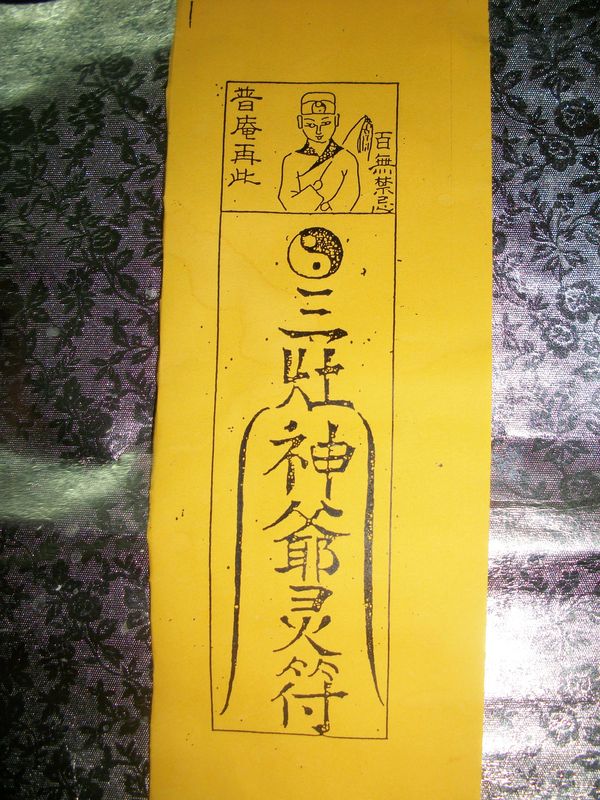 普庵再此
百無禁忌
三壯神爺灵符